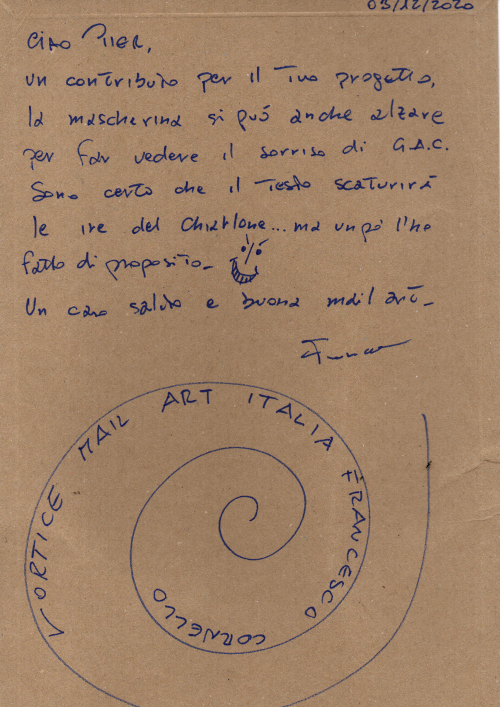 03/12/2020
CIAO PIER,
un contributo per il Tuo progetto,
la mascherina si può anche alzare
per far vedere il sorriso di G.A.C.
Sono certo che il Testo scaturirà
le ire del Chiarlone... ma un pó l'ho
fatto di proposito.
Un caro saluto e buona mail art.
VORTICE MAIL ART ITALIA FRANCESCO CORNELLO